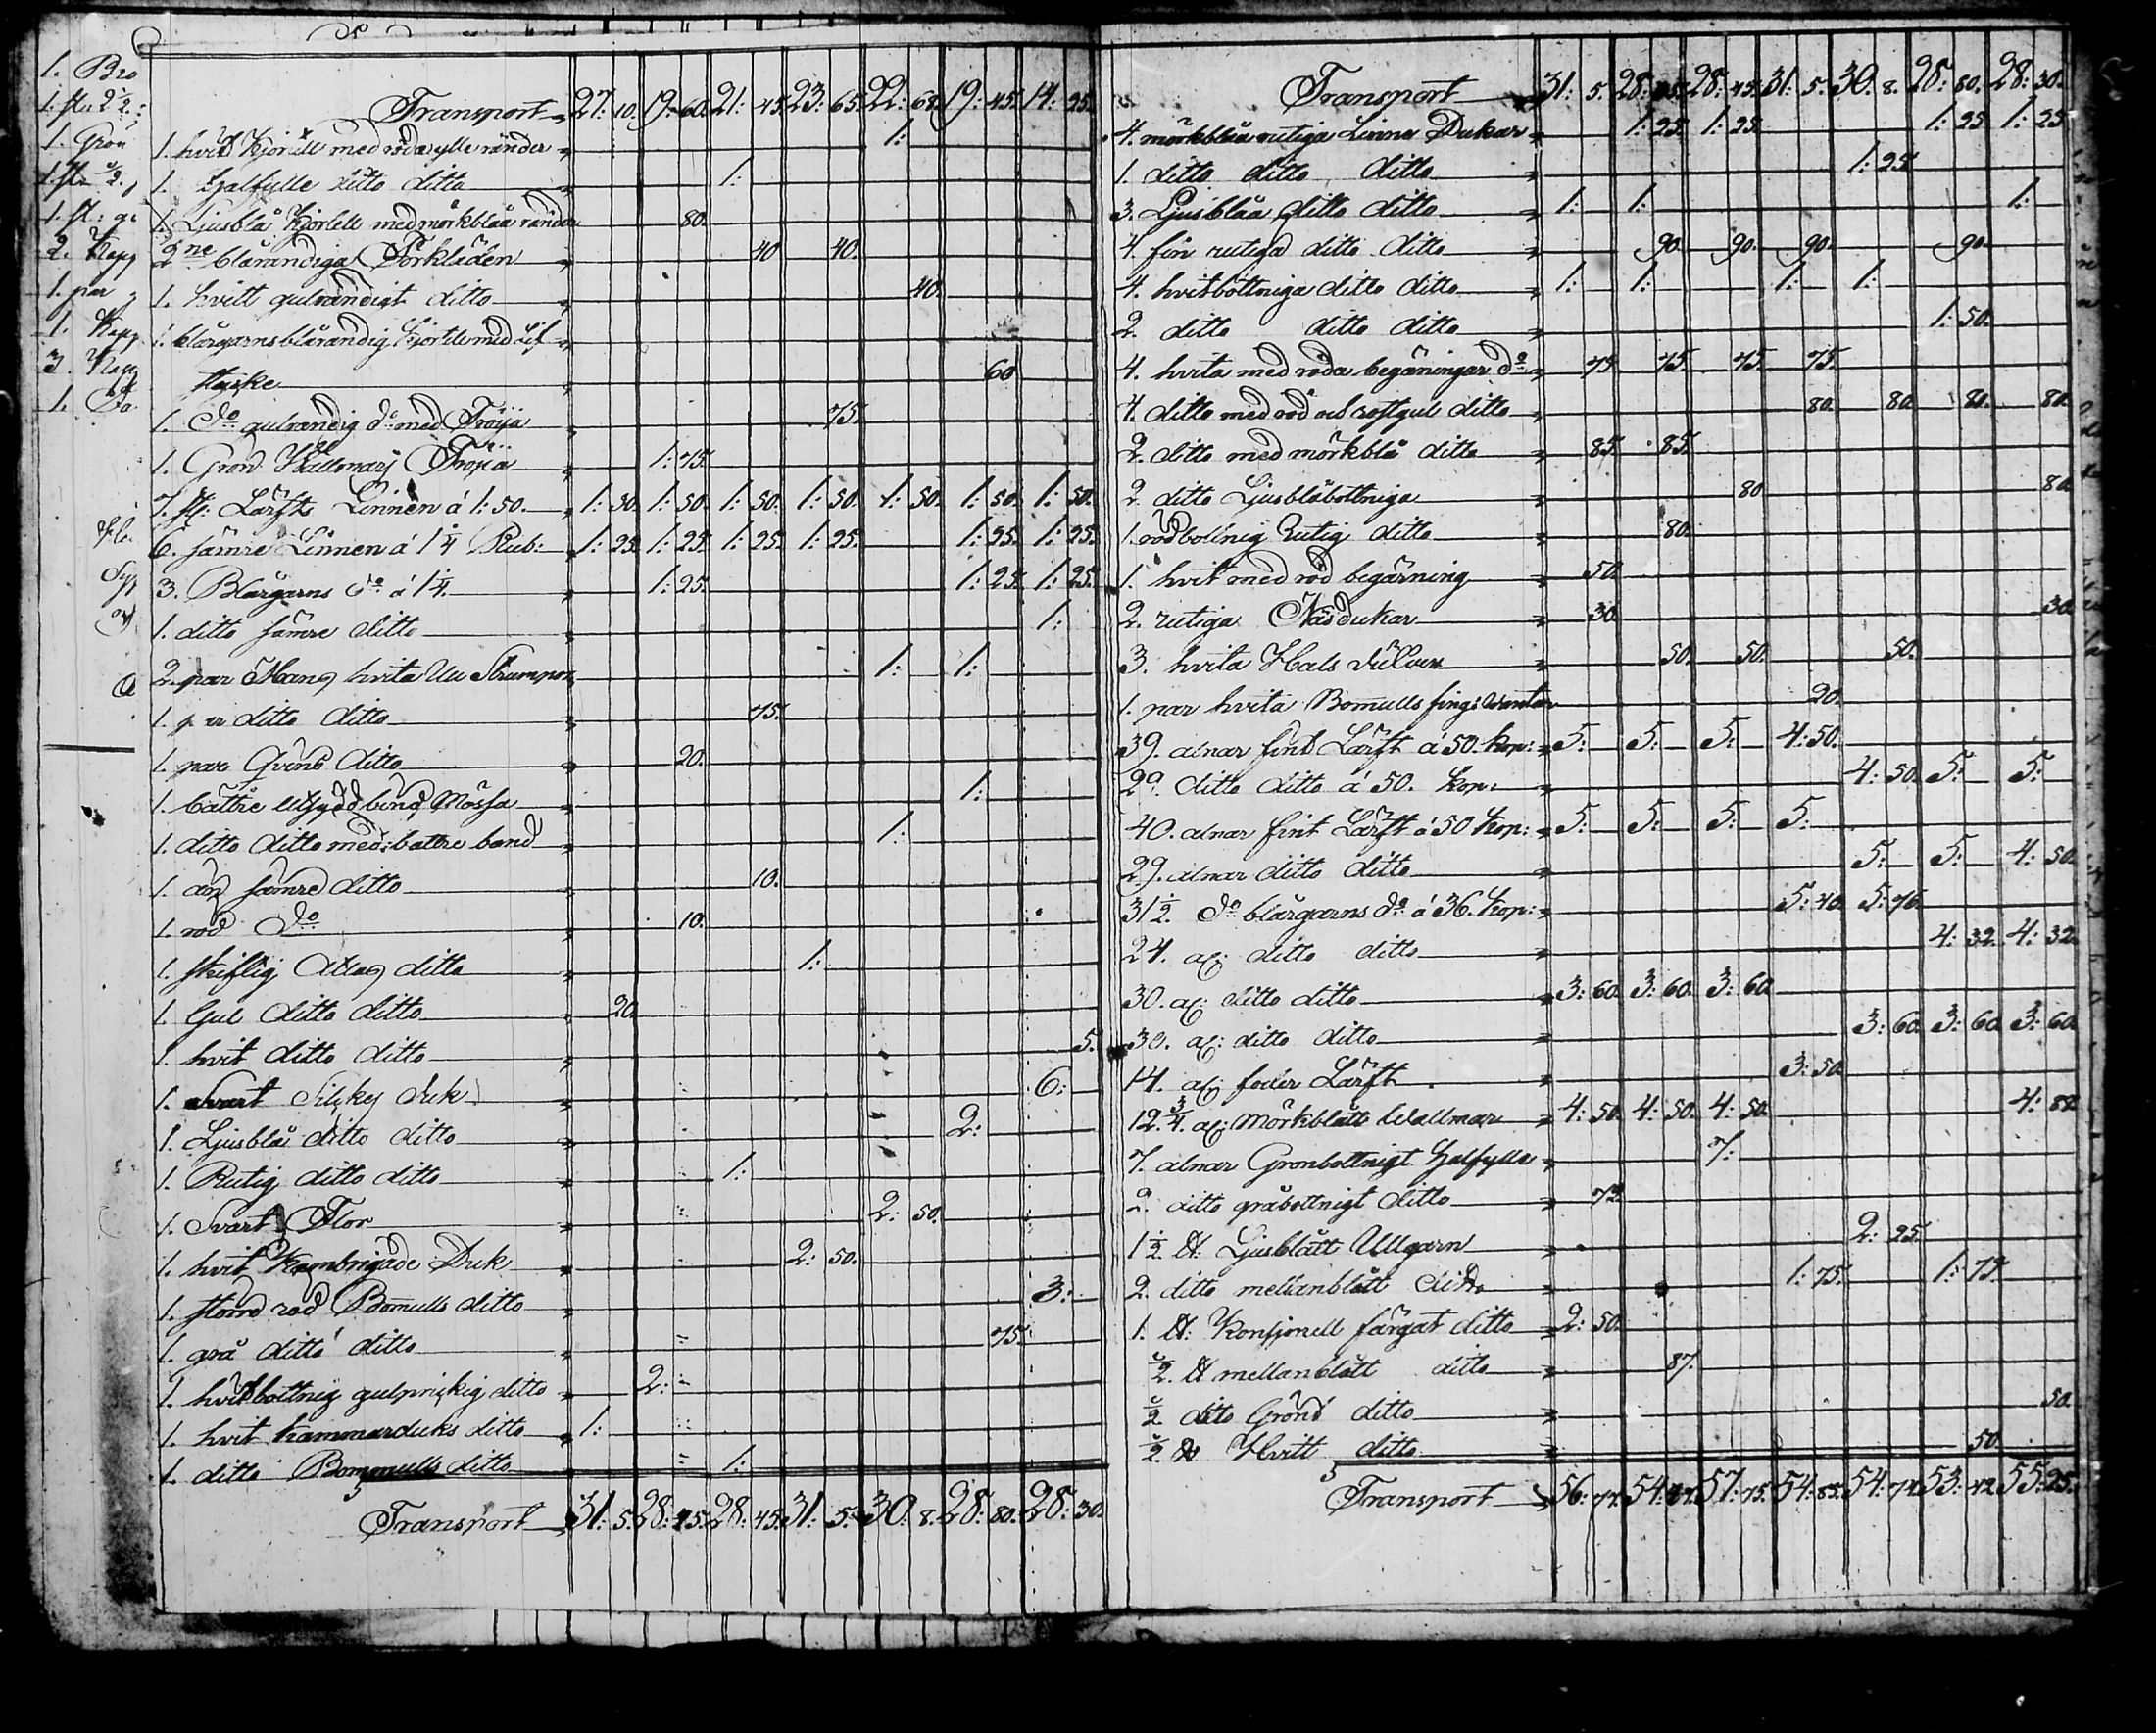 1. Bro
1. Grön
2. Kapp
1. par
1. Kapp
Transport 27: 10. 19: 60. 21: 45. 23: 65. 22: 68. 19: 45. 14: 25.
1. hvit Kjortill med röda ylle ränder 1:
1. Halfylle ditto ditto 1:
1. Ljusblå Kjortell med mörkblåa ränder 80.
2ne blårandiga Förkläden 40 40.
1. hvitt gulrandigt ditto 40.
1. blårgarns blårandig Kjortill med Lif
stycke 60
1. do gulrandig do med Tröija 75.
1. Grön Kattunars Tröija 1: 75.
7. st: Lärfts Linnen á 1: 50. 1: 50. 1: 50. 1: 50. 1: 50. 1: 50. 1: 50. 1: 50.
6. sämre Linnen á 1 1/4 Rub: 1: 25. 1: 25. 1: 25. 1: 25. 1: 25. 1: 25.
3. Blårgarns do á 1 1/4. 1: 25. 1: 25. 1: 25.
1. ditto sämre ditto 1:
2. par Mans hvita Ull Strumpor 1: 1:
1. par ditto ditto 75.
1. par Qvins ditto 20.
1. bättre utsydd bind Mössa 1:
1. ditto ditto med bättre band 1:
1. än sämre ditto 10.
1. röd do 10.
1. skiflig Atlas ditto 1:
1. Gul ditto ditto 20.
1. hvit ditto ditto 5.
1. Svart Silkes Duk 6:
1. Ljusblå ditto ditto 2:
1. Rutig ditto ditto 1:
1. Svart Flor 2: 50.
1. hvit Kambrigade Duk 2: 50.
1. större röd Bomulls ditto 3:
1. grå ditto ditto 75.
1. hvitbottnig gulprickig ditto 2:
1. hvit kammarduks ditto 1:
1. ditto Bommulls ditto 1:
Transport 31: 5. 28: 45. 28: 45. 31: 5. 30: 8. 28: 80. 28: 30.
Transport 31: 5. 28: 45. 28: 45. 31: 5. 30: 8. 28: 80. 28: 30.
4. mörkblåa rutiga Linne Dukar 1: 25. 1: 25. 1: 25 1: 25
1. ditto ditto ditto 1: 25.
3. Ljusblåa ditto ditto 1: 1: 1:
4. fin rutiga ditto ditto 90. 90. 90. 90.
4. hvitbottniga ditto ditto 1: 1: 1: 1:
2. ditto ditto ditto 1: 50.
4. hvita med röda begäningar do 75 75. 75. 75.
4. ditto med röd och rostgul ditto 80. 80 80. 80.
2. ditto med mörkblå ditto 85. 85.
2. ditto Ljusblåbottniga 80 80.
1. rödbottnig Rutig ditto 80.
1. hvit med röd begärning 50.
2. rutiga Näsdukar 30. 30.
3. hvita Hals dukar 50. 50. 50.
1. par hvita Bomulls fing: Wantar 20.
39. alnar fint Lärft á 50. kop: 5: 5: 5: 4: 50.
29. ditto ditto á 50. kop: 4: 50. 5: 5:
40. alnar fint Lärft á 50 kop: 5: 5: 5: 5:
29. alnar ditto ditto 5: 5: 4: 50.
31 1/2. do blårgarns do á 36. kop: 5: 40. 5: 76.
24. al: ditto ditto 4: 32. 4: 32.
30. al: ditto ditto 3: 60. 3: 60. 3: 60.
30. al: ditto ditto 3: 60. 3: 60. 3: 60.
14. al: foder Lärft 3: 50.
12 3/4. al: Mörkblått Wallmar 4: 50. 4: 50. 4: 50. 4: 88.
7. alnar Grönbottnigt Halfylle 7:
2. ditto gråbottnigt ditto 72.
1 1/2 ℔: Ljusblått Ullgarn 2: 25.
2. ditto mellanblått ditto 1: 75. 1: 75.
1. ℔: Konsjonell färgat ditto 2: 50.
1/2. ℔ mellanblått ditto 87.
1/2 ditto Grönt ditto 50.
1/2 ℔ Hvitt ditto 50
Transport 56: 77. 54: 57: 75. 54: 85. 54: 74. 53: 42. 55: 25.